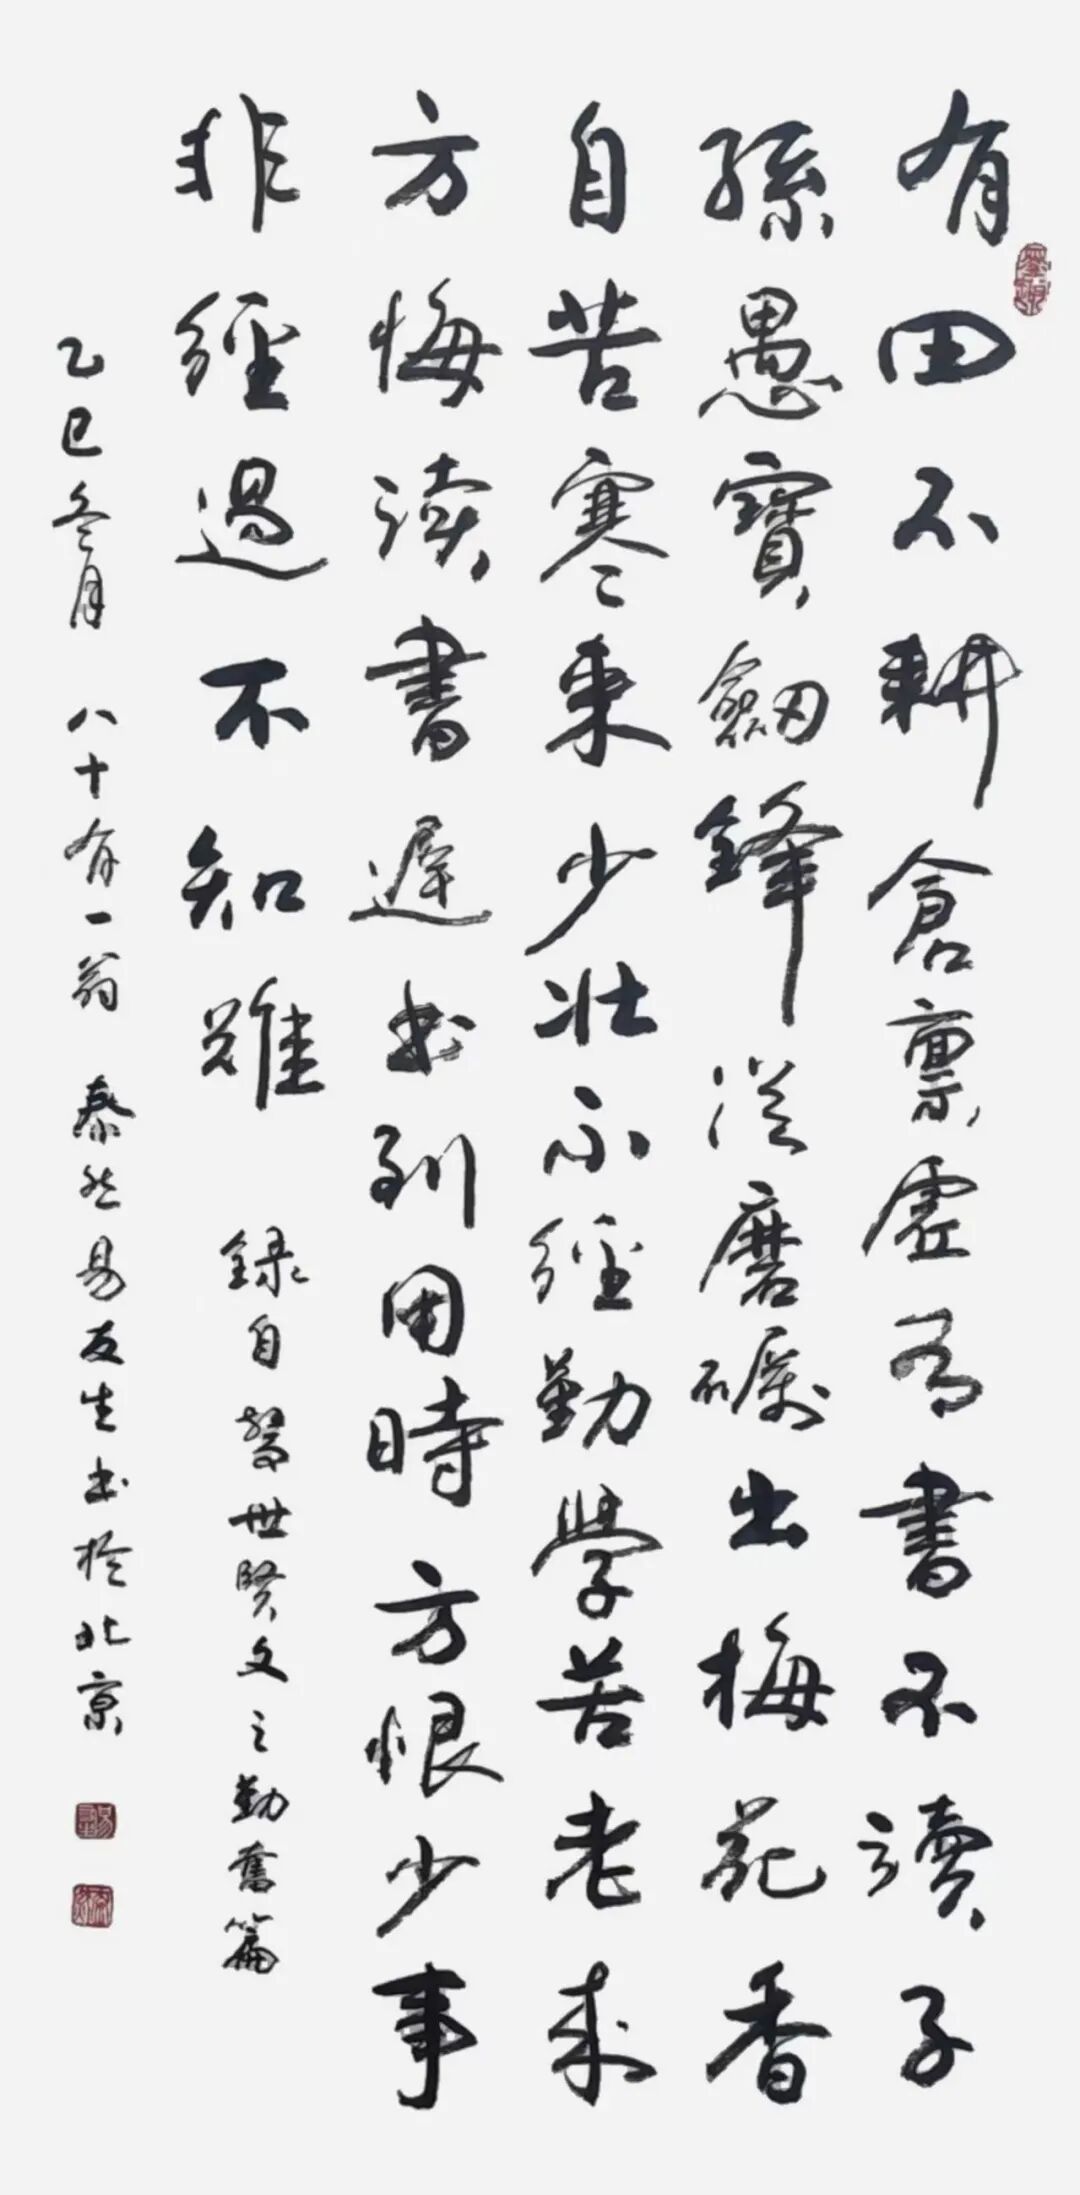 有田不耕倉禀虛有書不讀子
孫愚寶劔鋒從磨礪出梅花香
自苦寒来少壯不經勤學苦老来
方悔读書遲书到用時方恨少事
非經過不知難 録自警世賢文之勤奮篇
乙巳冬月 八十有一翁 泰然易友生书於北京